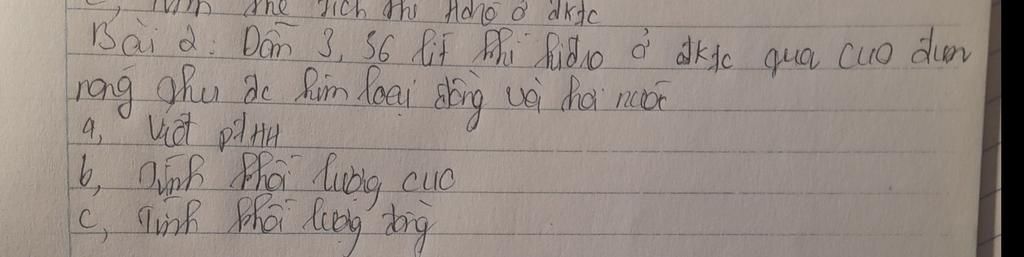 c, Tính thể tích khí Hđrô ở đktc
Bài 2: Dẫn 3,36 lít khí hiđro ở đktc qua CuO đun
nóng thu đc kim loại đồng và hơi nước
a, Viết ptHH
b, Tính khối lượng CuO
c, Tính khối lượng đồng